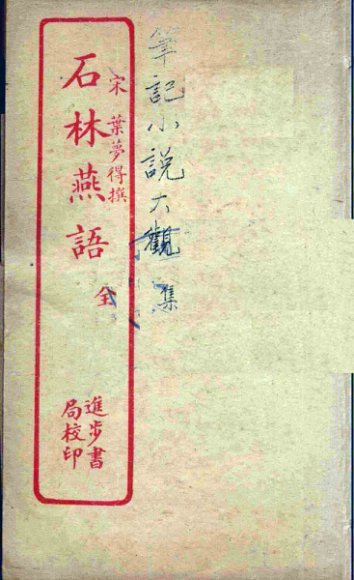 筆記小説大觀 集
宋 葉夢得撰
石林燕語 全
進步書
局校印